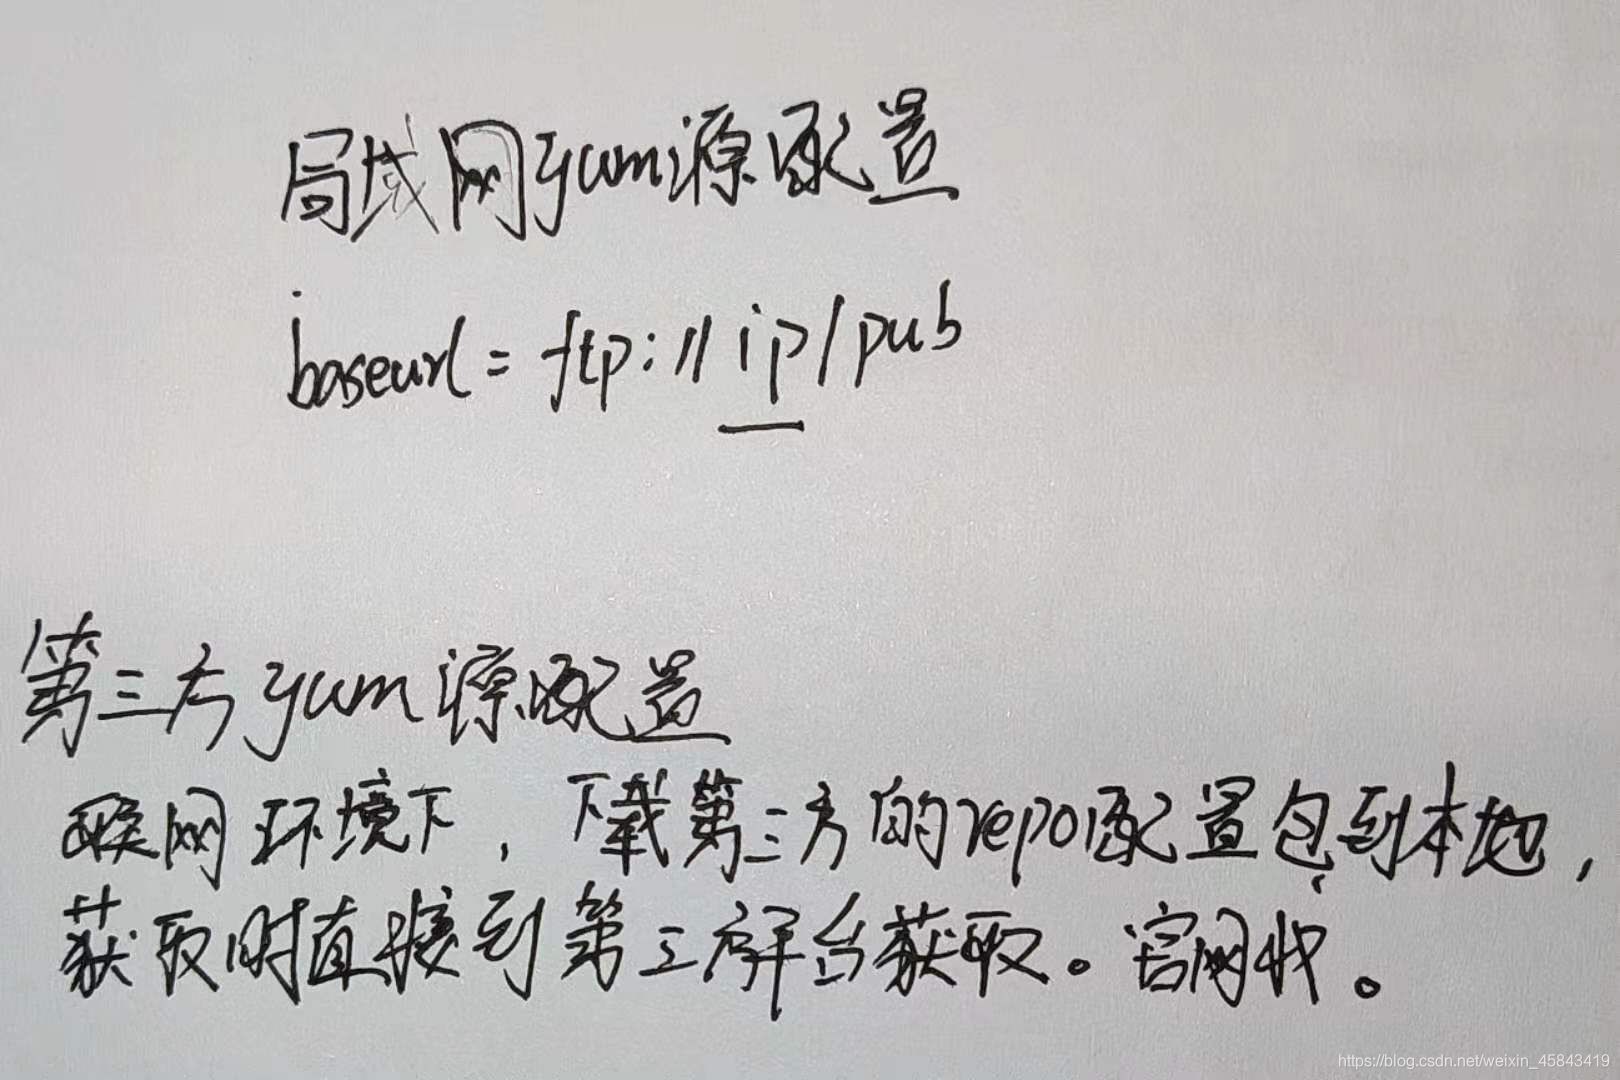 局域网yum源配置
baseurl = ftp://ip/pub
第三方yum源配置
联网环境下，下载第三方的repo配置包到本地，
获取时直接到第三方平台获取。官网找。
https://blog.csdn.net/weixin_45843419